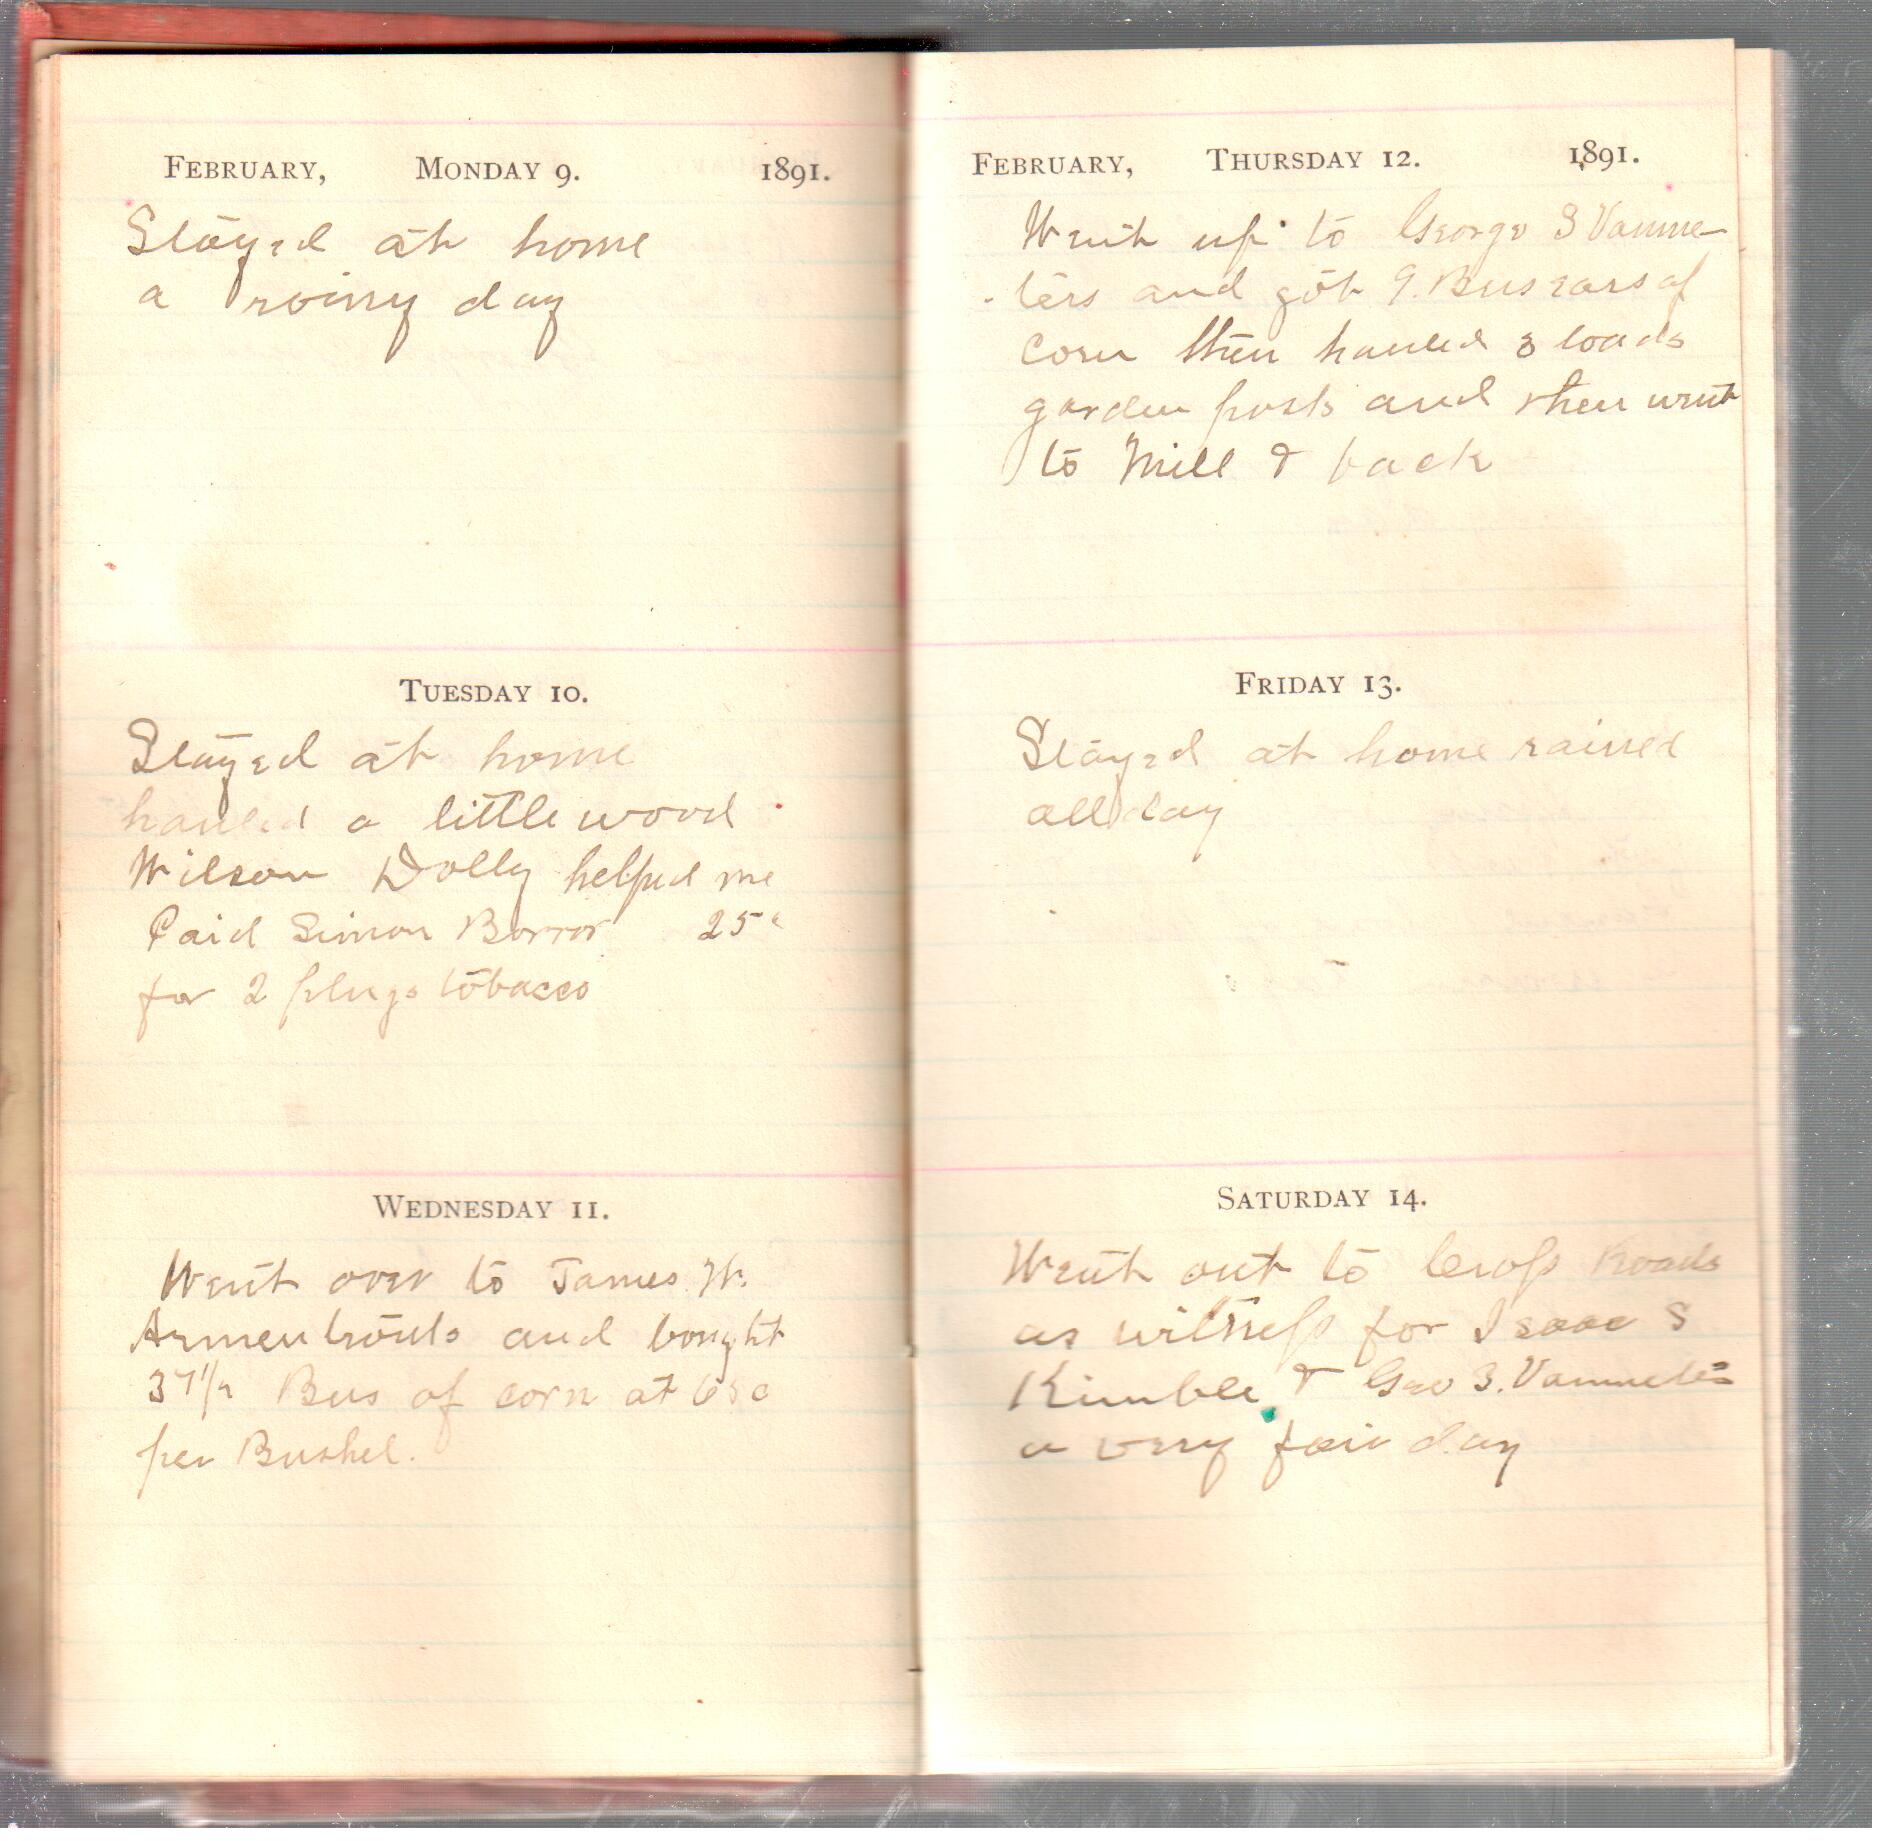 FEBRUARY, MONDAY 9. 1891.
Stayed at home
a rainy day
TUESDAY 10.
Stayed at home
hauled a little wood
Wilson Dolly helped me
Paid Simon Borror 25c
for 2 plugs tobacco
WEDNESDAY 11.
Went over to James W.
Armentrouts and bought
37 1/2 Bus of corn at 65c
per Bushel.
FEBRUARY, THURSDAY 12. 1891.
Went up to George S Vanme-
-ters and got 9. Bus ears of
corn then hauled 3 loads
garden posts and then went
to Mill & back
FRIDAY 13.
Stayed at home rained
all day
SATURDAY 14.
Went out to Cross Roads
as witness for Isaac S
Kimble & Geo S. Vanmeter
a very fair day